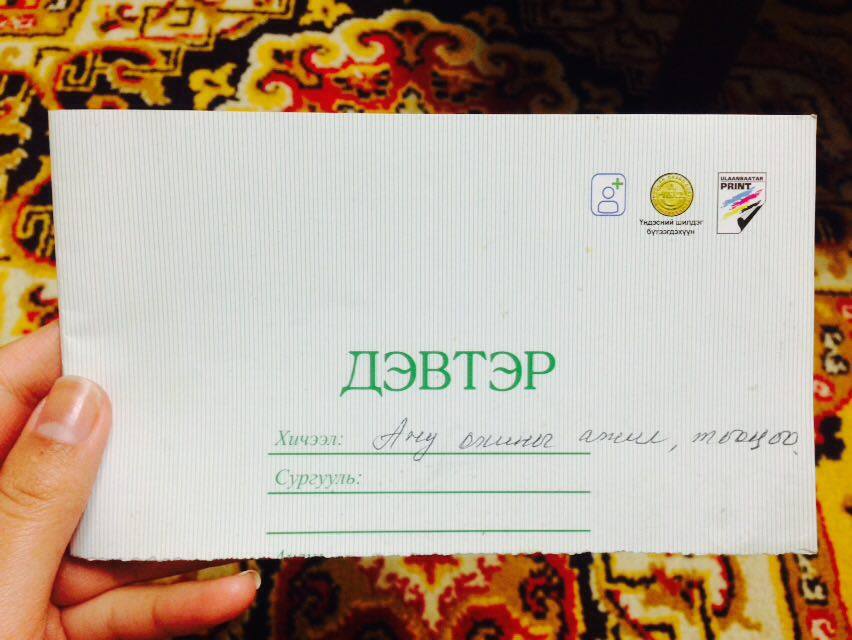 ULAANBAATAR
PRINT
Үндэсний шилдэг
бүтээгдэхүүн
ДЭВТЭР
Хичээл: Ану охины ажил, тооцоо.
Сургууль: